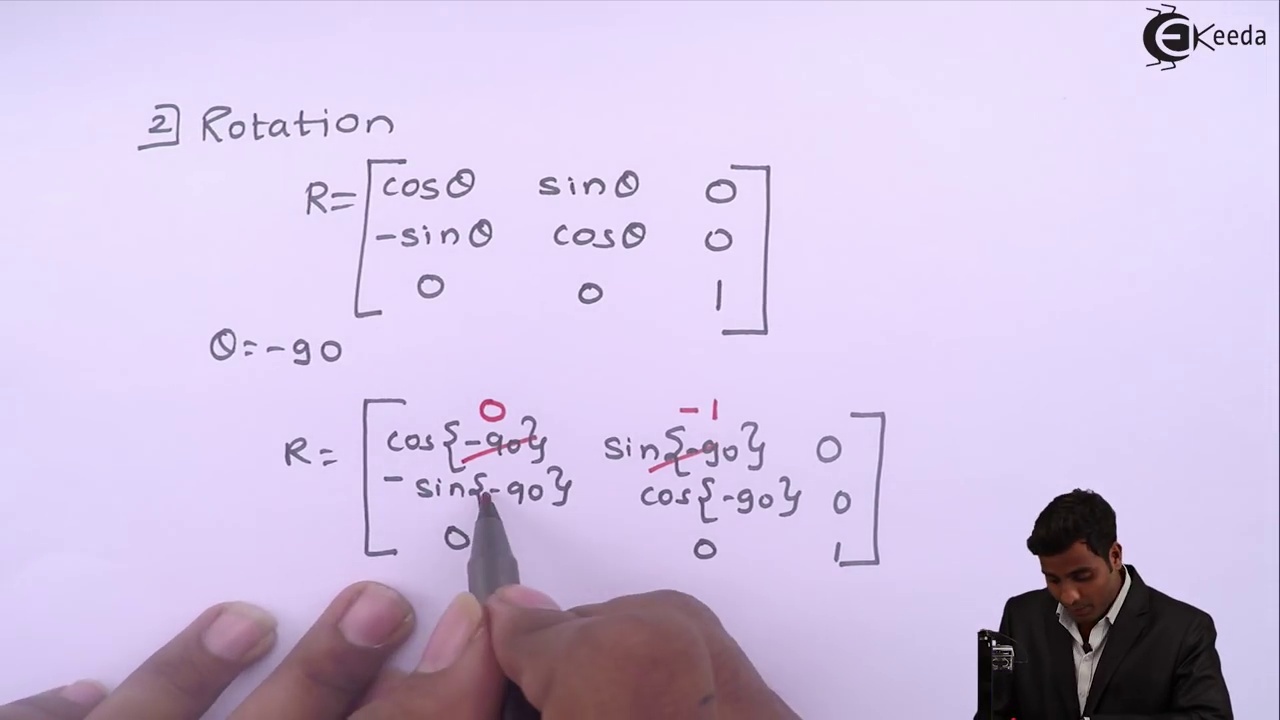 EKeeda
2] Rotation
R= [cosθ sinθ 0
-sinθ cosθ 0
0 0 1]
θ=-90
0 -1
R= [cos{-90} sin{-90} 0
-sin{-90} cos{-90} 0
0 0 1]